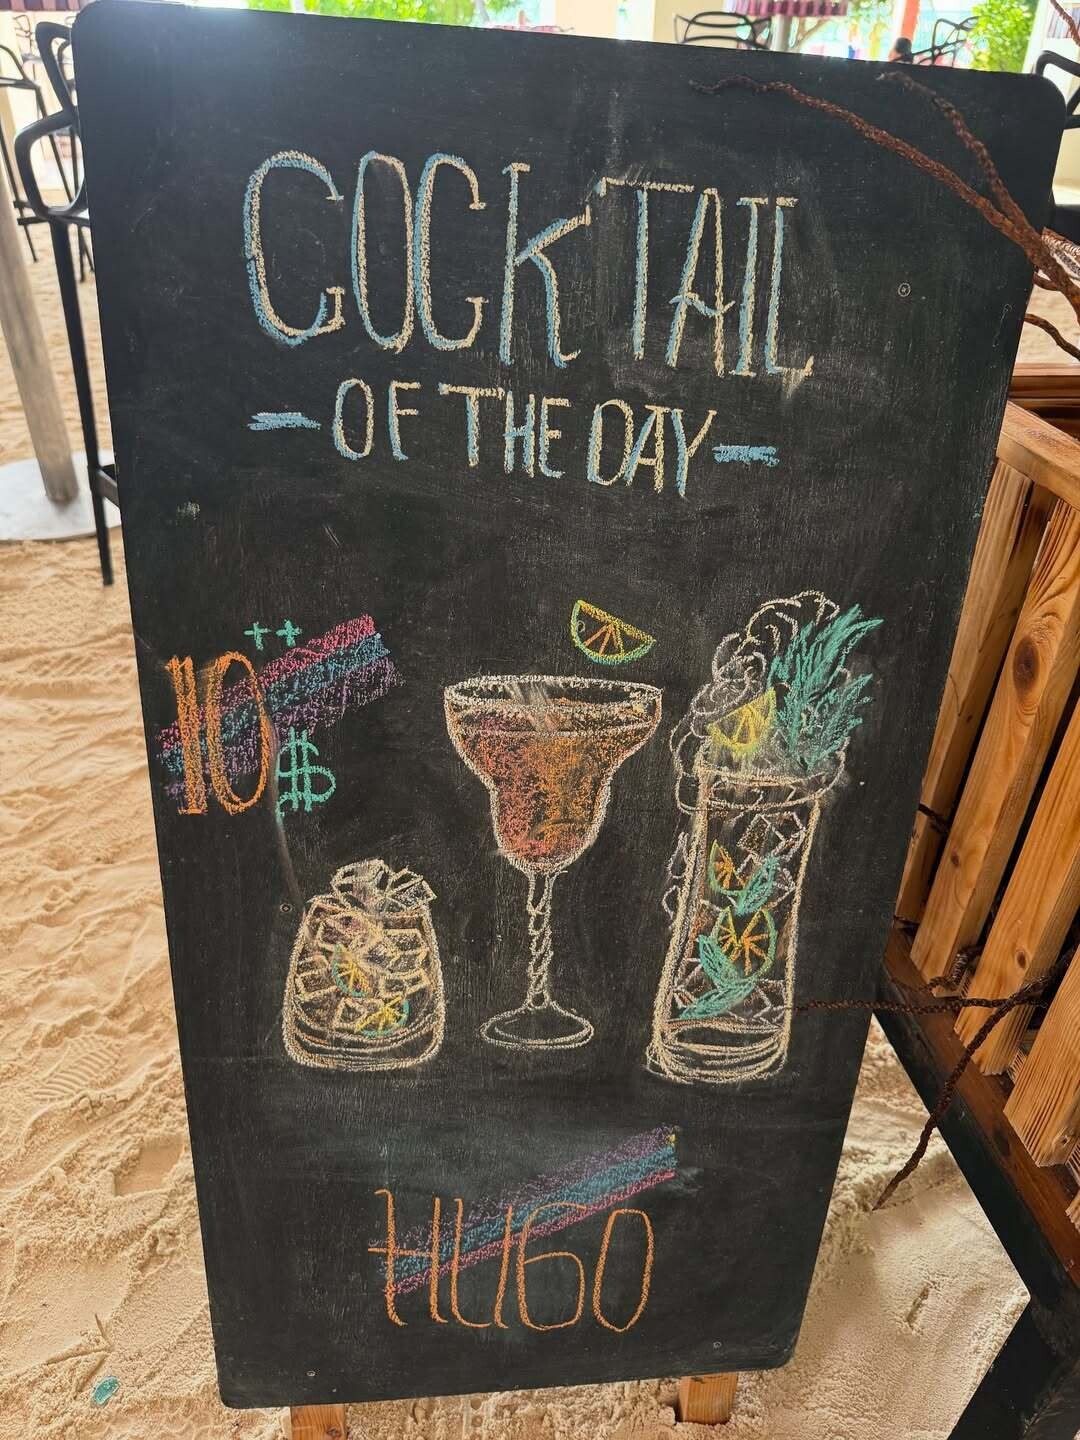 COCKTAIL
- OF THE DAY -
10++$
HUGO